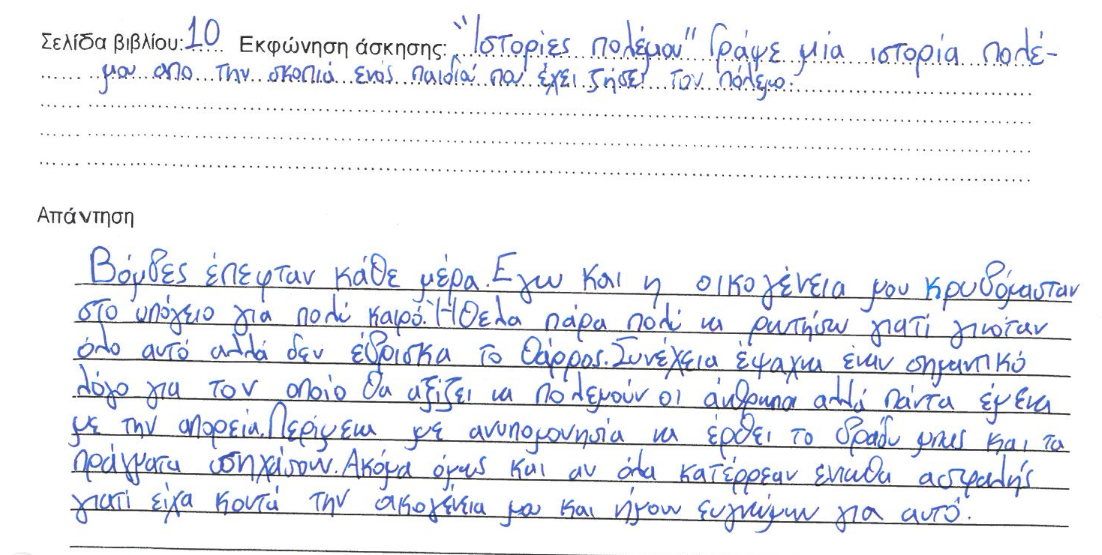 Σελίδα βιβλίου: 10 Εκφώνηση άσκησης: "Ιστορίες πολέμου" Γράψε μία ιστορία πολέ-
μου απο την σκοπιά ενός παιδιού που έχει ζήσει τον πόλεμο.
Απάντηση
Βόμβες έπεφταν κάθε μέρα. Εγω και η οικογένεια μου κρυβόμασταν
στο υπόγειο για πολύ καιρό. Ήθελα πάρα πολύ να ρωτήσω γιατί γινόταν
όλο αυτό αλλά δεν έβρισκα το θάρρος. Συνέχεια έψαχνα έναν σημαντικό
λόγο για τον οποίο θα αξίζει να πολεμούν οι άνθρωποι αλλά πάντα έμενα
με την απορεία. Περίμενα με ανυπομονησία να έρθει το βράδυ μπας και τα
πράγματα ησηχάσουν. Ακόμα όμως και αν όλα κατέρρεαν ένιωθα ασφαλής
γιατί είχα κοντά την οικογένεια μου και ήμουν ευγνώμων για αυτό.